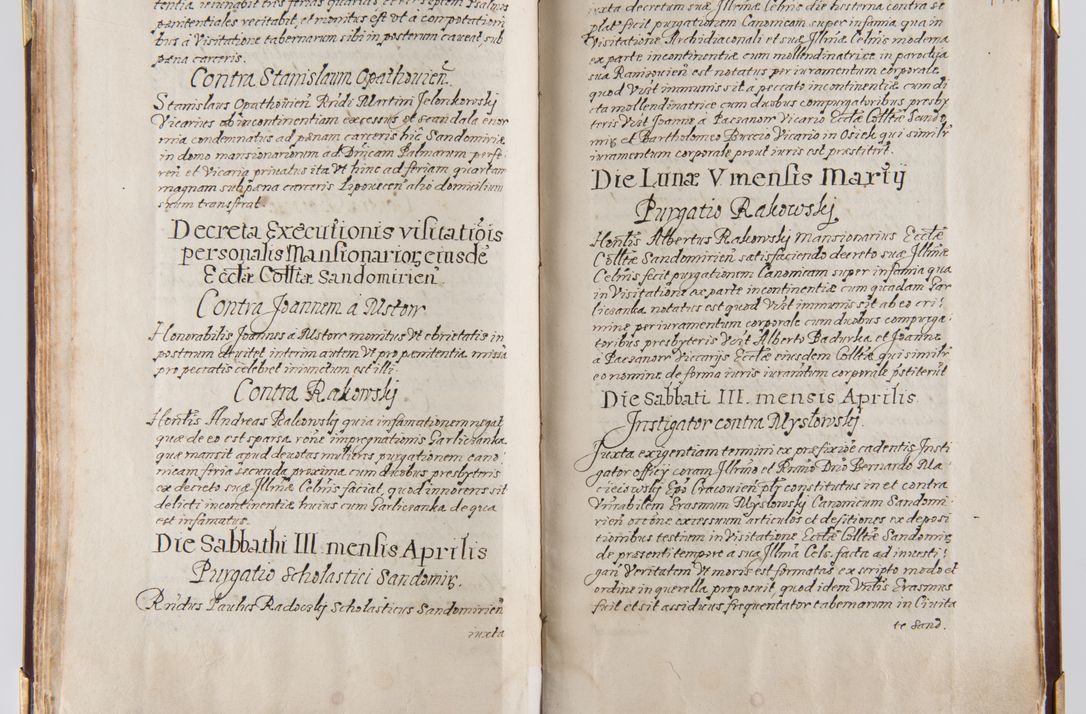 tentia ieiunabit tres ferias quartas et ter septem Psalmos
pænitentiales recitabit, et monitus est vt à compotation:
bus à Visitatione tabernarum sibi in posterum caueat, sub
pæna carceris.
Contra Stanislaum Opathouień
Stanislaus Opathouień Rńdi Martini Jelonkowskj
Vicarius ob incontinentiam excessus et scandala enor
mia condemnatus ad pænam carceris hic Sandomiriæ
in domo mansionariorum ad Dńicam Palmarum perfe:
reń et Vicaria priuatus ita vt hinc ad feriam quartam
magnam sub pæna carceris Lipouecen alio domicilium
suum transferat.
Decreta Executionis visitatiois
personalis Mansionarior eiusdē
Ecclæ Colltæ Sandomirień
Contra Joannem à Mstow
Honorabilis Joannes à Mstow monitus vt ebrietatis in
posterum deuitet interim autem vt pro pænitentia missā
pro peccatis celebret iniunctum est illi.
Contra Rakowskj.
Hontis Andreas Rakowskj quia infamationem negat
quæ de eo est sparsa rone impregnationis Garliczanka
quæ mansit apud deuotas mulieres purgationem cano:
nicam feria secunda proxima cum duobus presbyteris
ex decreto suæ Illmæ Celnis faciat, quod innocens sit
delicti incontinentiæ huius cum Garliczanka de qua
est infamatus.
Die Sabbathi III mensis Aprilis
Purgatio Scholastici Sandomir.
Rńdus Paulus Radoskj Scholasticus Sandomirień
iuxta
iuxta decretum suæ Illmæ Celnis die hesterna contra se
plat fecit purgationem Canonicam super infamia qua in
Visitatione Archidiaconali et suæ Illmæ Celnis moderna
ex parte incontinentiæ cum mollendinatrice in parochia
sua Ranizouień est notatus per iuramentum corporale
quod Vixit immunis sit a peccato incontinentiæ cum di
cta mollendinatrice cum duobus compurgatoribus presby
teris Vixt Joanne à Paczanow Vicario Ecclæ Colltæ Sando
mir et Bartholomeo Burcio Vicario in Osiek qui similr
iuramentum corporale prout iuris est præstiterūt.
Die Lunæ V mensis Martij
Purgatio Rakowskj.
Hontis Albertus Rakowskj mansionarius Ecclæ
Colltæ Sandomirień satisfaciendo decreto suæ Illmæ
Celnis fecit purgationem Canonicam super infamia qua
in Visitationæ ex parte incontinentiæ cum quadam Gar
liczanka notatus est quod Vixt immunis sit ab eo cri:
mine per iuramentum corporale cum duobus compurga:
toribus presbyteris Vixt Alberto Badurka et Joanne
à Paczanow Viccarijs Ecclæ eiusdem Colltæ qui similr
eo nomine de forma iuris iuramtum corporale pstiterūt
Die Sabbati III. mensis Aprilis
Instigator contra Myslowskj.
Juxta exigentiam termini ex præfixoe cadentis Insti
gator officij coram Illmo et Rnmo Dno Bernardo Ma
cieiowskj Epo Cracouień plr constitutus in et contra
Vnrabilem Erasmum Myslowskj Canonicum Sandomi:
rień ac cōne excessuum articulos et defitiones ex deposi
tionibus testium in Visitatione Ecclæ Colltæ Sandomir
de præsenti tempore a sua Illma Cels. facta ad inuesti:
gań Veritatem vt moris est formatas ex scripto modo et
ordine in querella proposuit quod idem Vnlis Erasmus
fuit et sit assiduus frequentator tabernarum in Ciuita
te Sand.